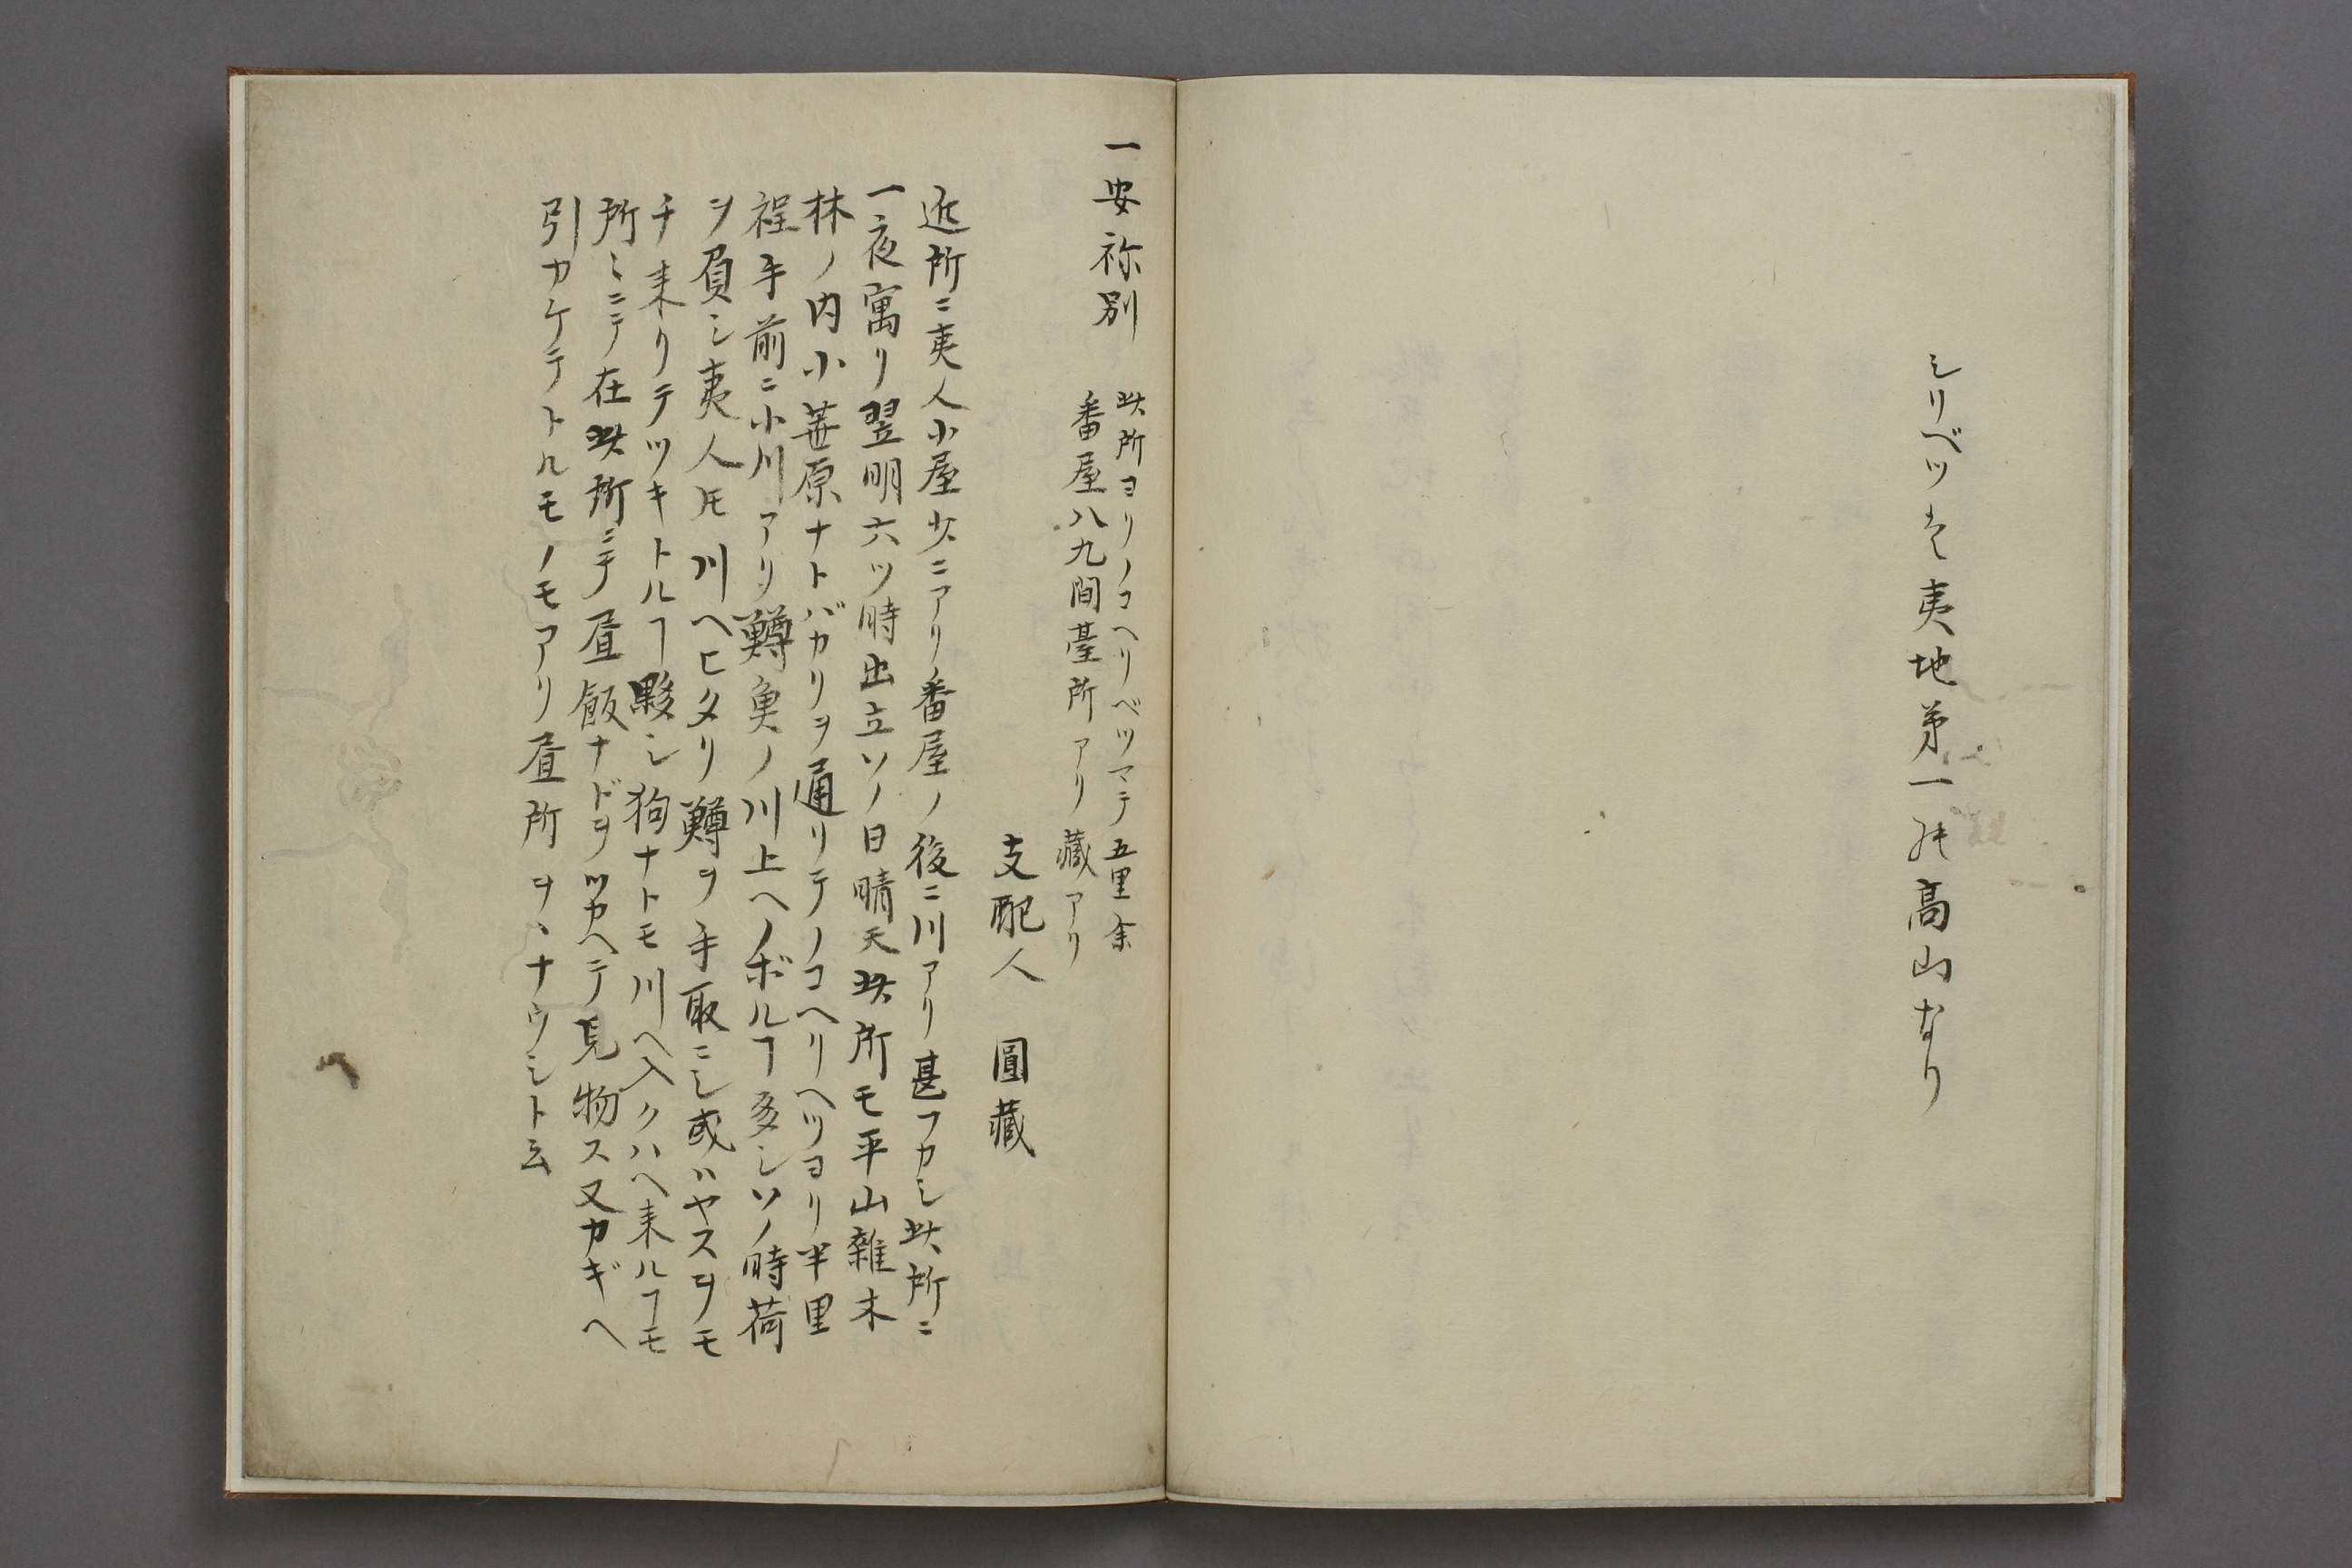 シリベツは夷地第一の高山なり
一安祢別
此所ヨリノコヘリベツマテ五里余
番屋八九間䑓所アリ藏アリ
支配人　圓藏
近所ニ夷人小屋少ニアリ番屋ノ後ニ川アリ甚フカシ此所ニ
一夜寓リ翌明六ツ時出立ソノ日晴天此所モ平山雜木
林ノ内小笹原ナトバカリヲ通リテノコヘリヘツヨリ半里
程手前ニ小川アリ鱒魚ノ川上ヘノボルヿ多シソノ時荷
ヲ負シ夷人𪜈川ヘヒタリ鱒ヲ手取ニシ或ハヤスヲモ
チ来リテツキトルヿ夥シ狗ナトモ川ヘ入クハヘ来ルヿモ
所〻ニテ在此所ニテ昼飯ナドヲツカヘテ見物ス又カギヘ
引カケテトルモノモアリ昼所ヲヽナウシト云